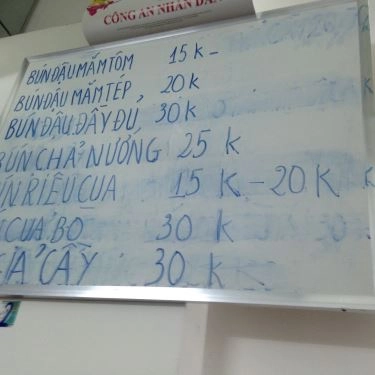 CÔNG AN NHÂN DÂN
BÚN ĐẬU MẮM TÔM 15 K -
BÚN ĐẬU MẮM TÉP 20 K
BÚN ĐẬU ĐẦY ĐỦ 30 K
BÚN CHẢ NƯỚNG 25 K
ÚN RIÊU CUA 15 K - 20 K
CUA BÒ 30 K
GIẢ CẦY 30 K
2